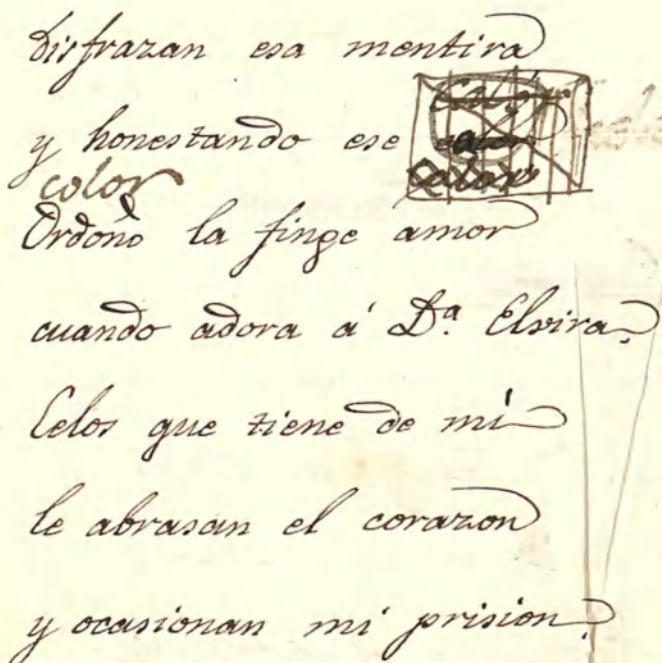 disfrazan esa mentira
y honestando ese
color
Ordoño la finge amor
cuando adora á D.ª Elvira.
Celos que tiene de mí
le abrasan el corazon
y ocasionan mi prision.